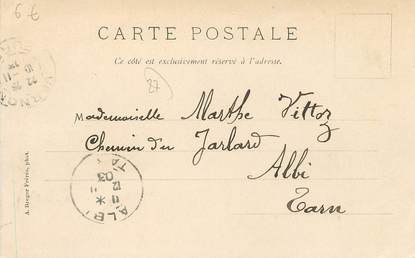 CARTE POSTALE
Ce côté est exclusivement réservé à l'adresse.
27
Mademoiselle Marthe Vittoz
Chemin du Jarlard
Albi
Tarn
A. Berger Frères, phot.
ALBI
TA